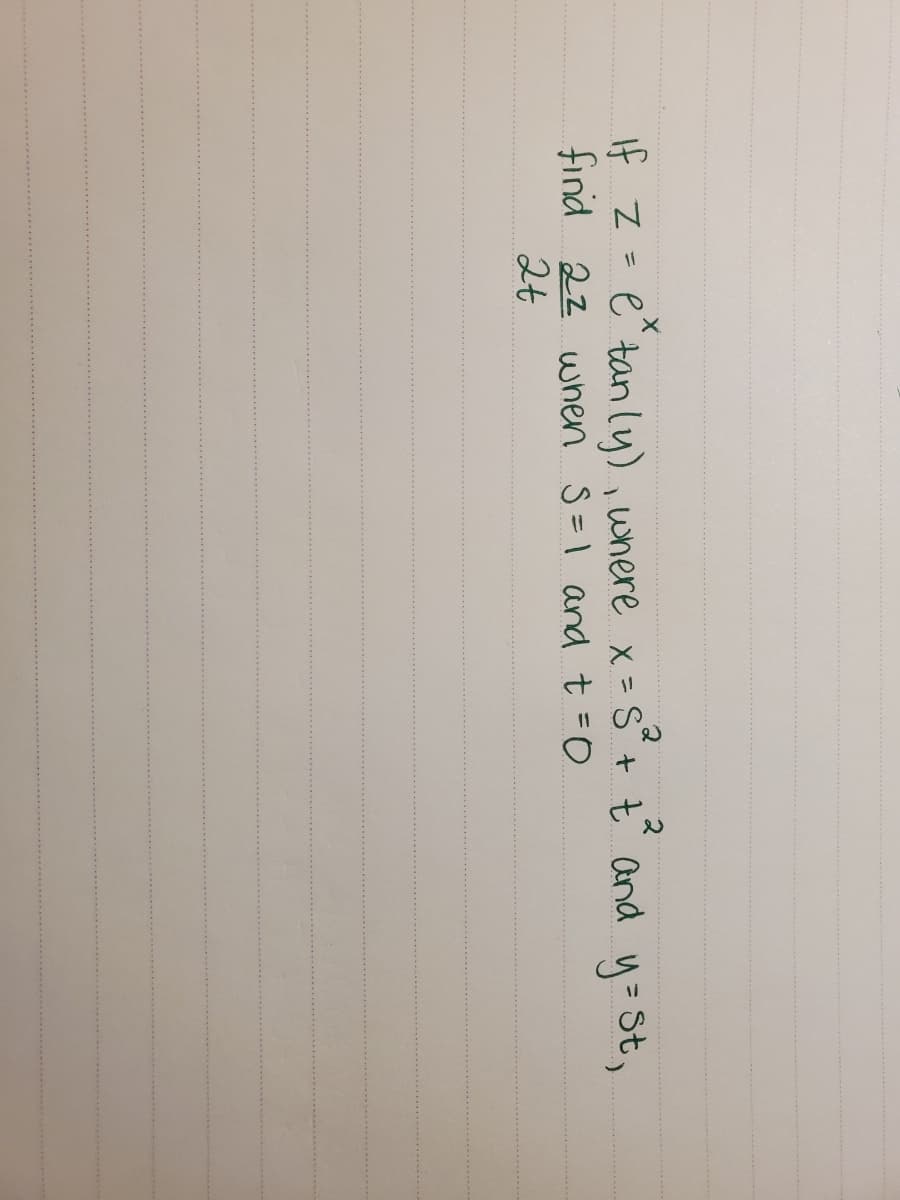 If z = e^x tan(y), where x = s² + t² and y = st,
find ∂z/∂t when s = 1 and t = 0